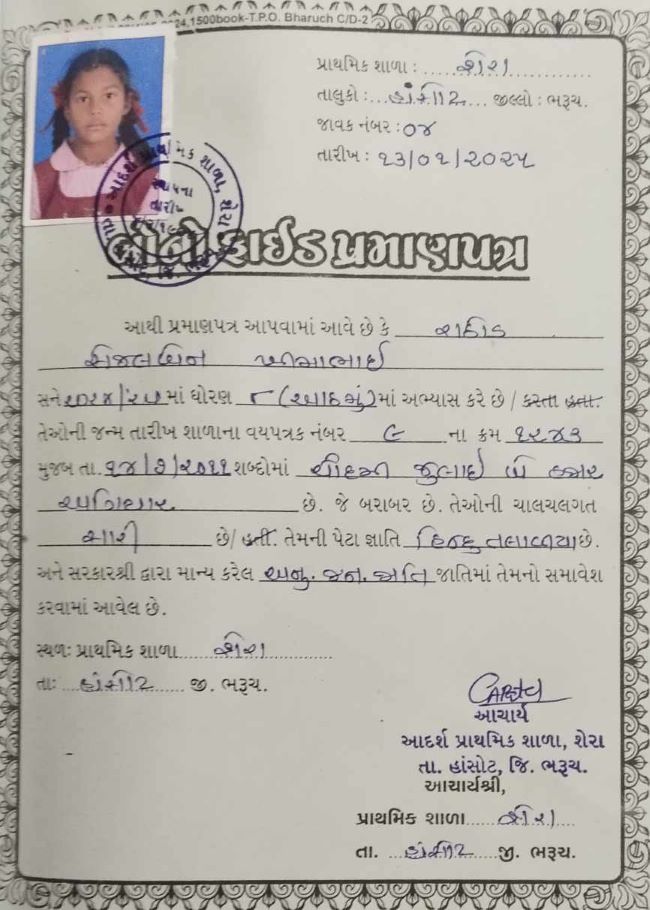 2024,1500book-T.P.O. Bharuch C/D-2
પ્રાથમિક શાળા : શેરા
તાલુકો : હાંસોટ જીલ્લો : ભરૂચ.
જાવક નંબર : ૦૪
તારીખ : ૧૩/૦૧/૨૦૨૫
આદર્શ પ્રાથમિક શાળા, શેરા
સ્થાપના
તારીખ
બોનોફાઈડ પ્રમાણપત્ર
આથી પ્રમાણપત્ર આપવામાં આવે છે કે રાઠોડ
સેજલબેન ખીમાભાઈ
સને ૨૦૨૪/૨૫ માં ધોરણ ૮ (આઠમું) માં અભ્યાસ કરે છે / કરતા હતા.
તેઓની જન્મ તારીખ શાળાના વયપત્રક નંબર ૯ ના ક્રમ ૧૨૪૩
મુજબ તા. ૧૪/૭/૨૦૧૧ શબ્દોમાં ચૌદમી જુલાઈ બે હજાર
અગિયાર છે. જે બરાબર છે. તેઓની ચાલચલગત
સારી છે/ હતી. તેમની પેટા જ્ઞાતિ હિન્દુ તલાવિયા છે.
અને સરકારશ્રી દ્વારા માન્ય કરેલ અનુ. જન. જાતિ જાતિમાં તેમનો સમાવેશ
કરવામાં આવેલ છે.
સ્થળ: પ્રાથમિક શાળા શેરા
તા: હાંસોટ જી. ભરૂચ.
આચાર્ય
આદર્શ પ્રાથમિક શાળા, શેરા
તા. હાંસોટ, જિ. ભરૂચ.
આચાર્યશ્રી,
પ્રાથમિક શાળા શેરા
તા. હાંસોટ જી. ભરૂચ.